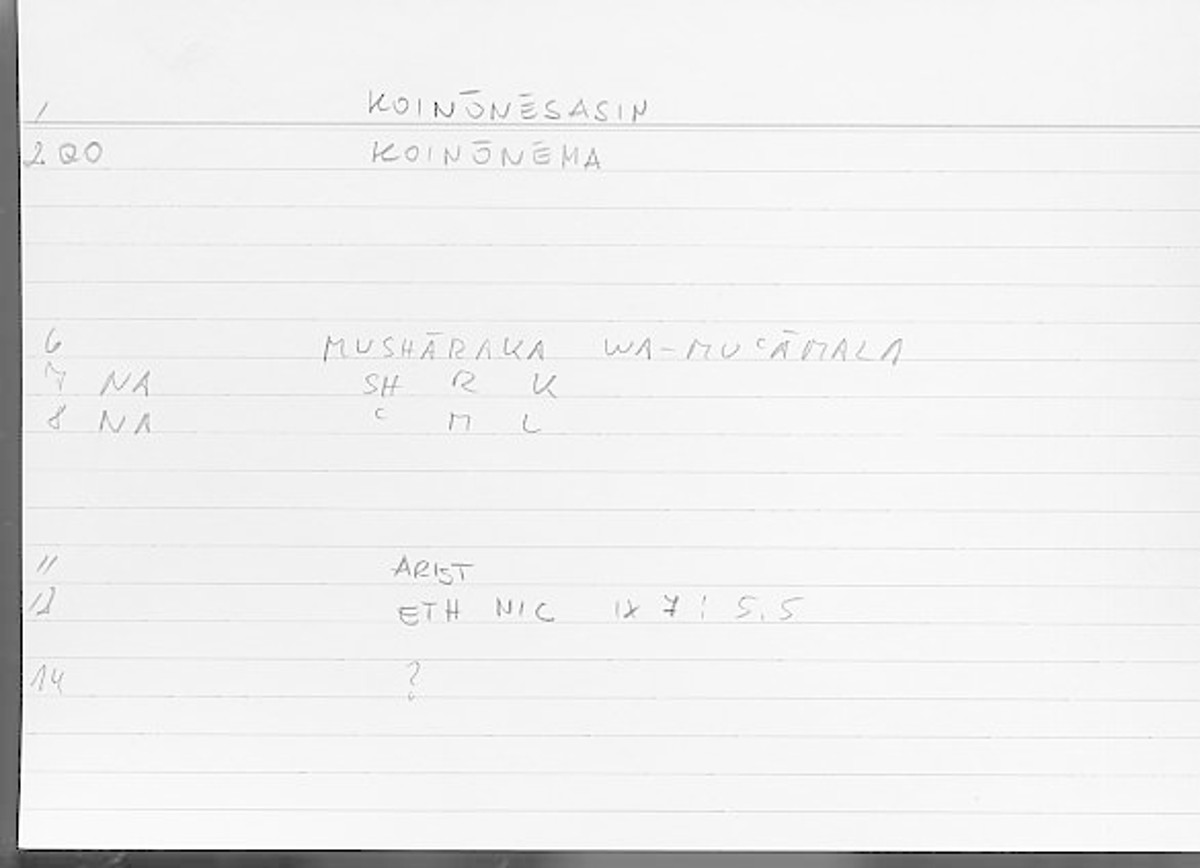 1 KOINŌNĒSASIN
2 QO KOINŌNĒMA
6 MUSHĀRAKA WA-MUʿĀMALA
7 NA SH R K
8 NA ʿ M L
11 ARIST
12 ETH NIC IX 7 : 5.5
14 ?